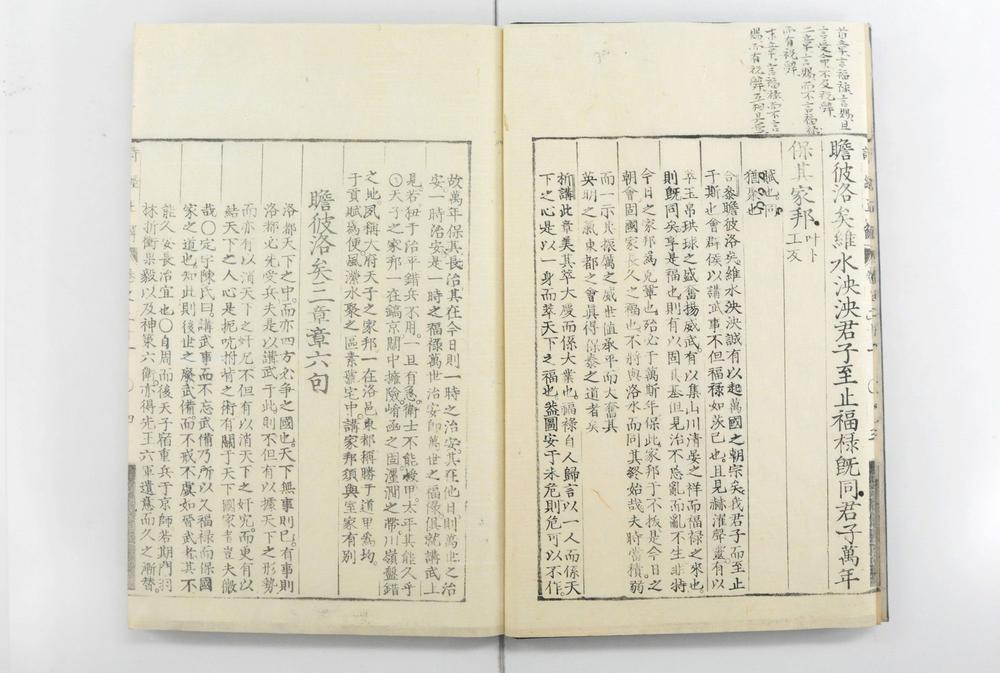 首章言福祿言賜且
言受命不及祝辭
二章言賜而不言福祿
而有祝辭
末章言福祿而不言
賜而有祝辭互相見
瞻彼洛矣維水泱泱君子至止福祿旣同君子萬年
保其家邦叶卜工反
賦也同
猶聚也
合參瞻彼洛矣維水泱泱誠有以起萬國之朝宗矣我君子而至止
于斯也會群侯以講武事不但福祿如茨已也且見赫濯聲靈有以
萃玉帛珙球之盛奮揚威武有以集山川淸晏之祥而福祿之來也
則旣同矣享是福也則有以固其基但見治不忘亂而亂不生
今日之家邦爲克鞏也殆必于萬斯年保此家邦于不拔是今日之
朝會固國家長久之福也不將與洛水而同其終始哉夫時當積弱
而一示以振厲之威世值承平而大奮其
英明之氣東都之會眞得保泰之道者矣
析講此章美其萃大慶而係大業也福祿自人歸言以一人而係天
下之心是以一身而萃天下之福也益圖安于未危則危可以不作
故萬年保其長治其在今日則一時之治安其在他日則萬世之治
安一時治安是一時之福祿萬世治安卽萬世之福祿俱就講武上
見若狃于治平錯兵不用一旦有急衛士不能被甲太平其能久乎
○天子之家邦一在鎬京關中擁險崤函之固瀍澗之帶川嶺盤錯
之地夙稱大府天子之家邦一在洛邑東都稱勝于道里爲均
于貢賦爲便風濼水聚之區素號宅中講家邦須與室家有別
瞻彼洛矣三章章六句
洛都天下之中而亦四方必爭之國也天下無事則已有事則
洛都必先受兵夫是以講武于此則不但有以據天下之形勢
而亦有以消天下之奸尤不但有以消天下之奸宄而更有以
結天下之人心是扼吭拊背之術有關于天下國家者豈夫微
哉○定宇陳氏曰講武事而不忘武備乃所以久福祿而保國
家之道也知此則後世之廢武備而不戒不虞如晉武者其不
能久安長治宜也○自周而後天子宿重兵于京師若期門羽
林折衝果毅以及神策六衛亦得先王六軍遺意而久之漸替